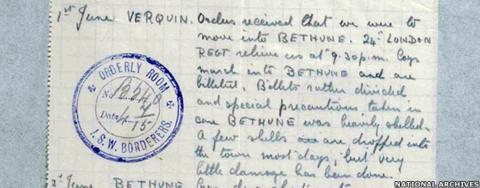 1st June VERQUIN. Orders received that we were to
move into BETHUNE. 24th LONDON
REGT relieve us at 9.30p.m. Coys
march into BETHUNE and are
billeted. Billets rather divided
and special precautions taken in
case BETHUNE was heavily shelled.
A few shells are dropped into
the town most days, but very
little damage has been done.
2d June BETHUNE
ORDERLY ROOM
No
Date
1. S.W. BORDERERS.
NATIONAL ARCHIVES